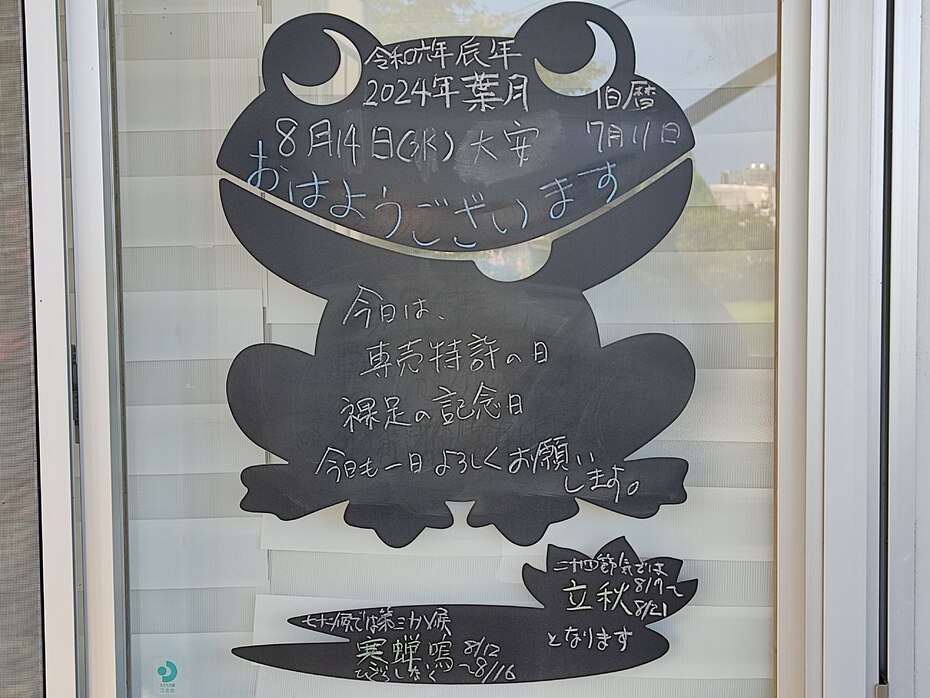 令和六年辰年
2024年葉月
旧暦
7月11日
8月14日(水)大安
おはようございます
今日は、
専売特許の日
裸足の記念日
今日も一日よろしくお願い
します。
二十四節気では
立秋 8/7~
8/21
となります
七十二候では第三カ候
寒蝉鳴 8/12
ひぐらしなく ~8/16